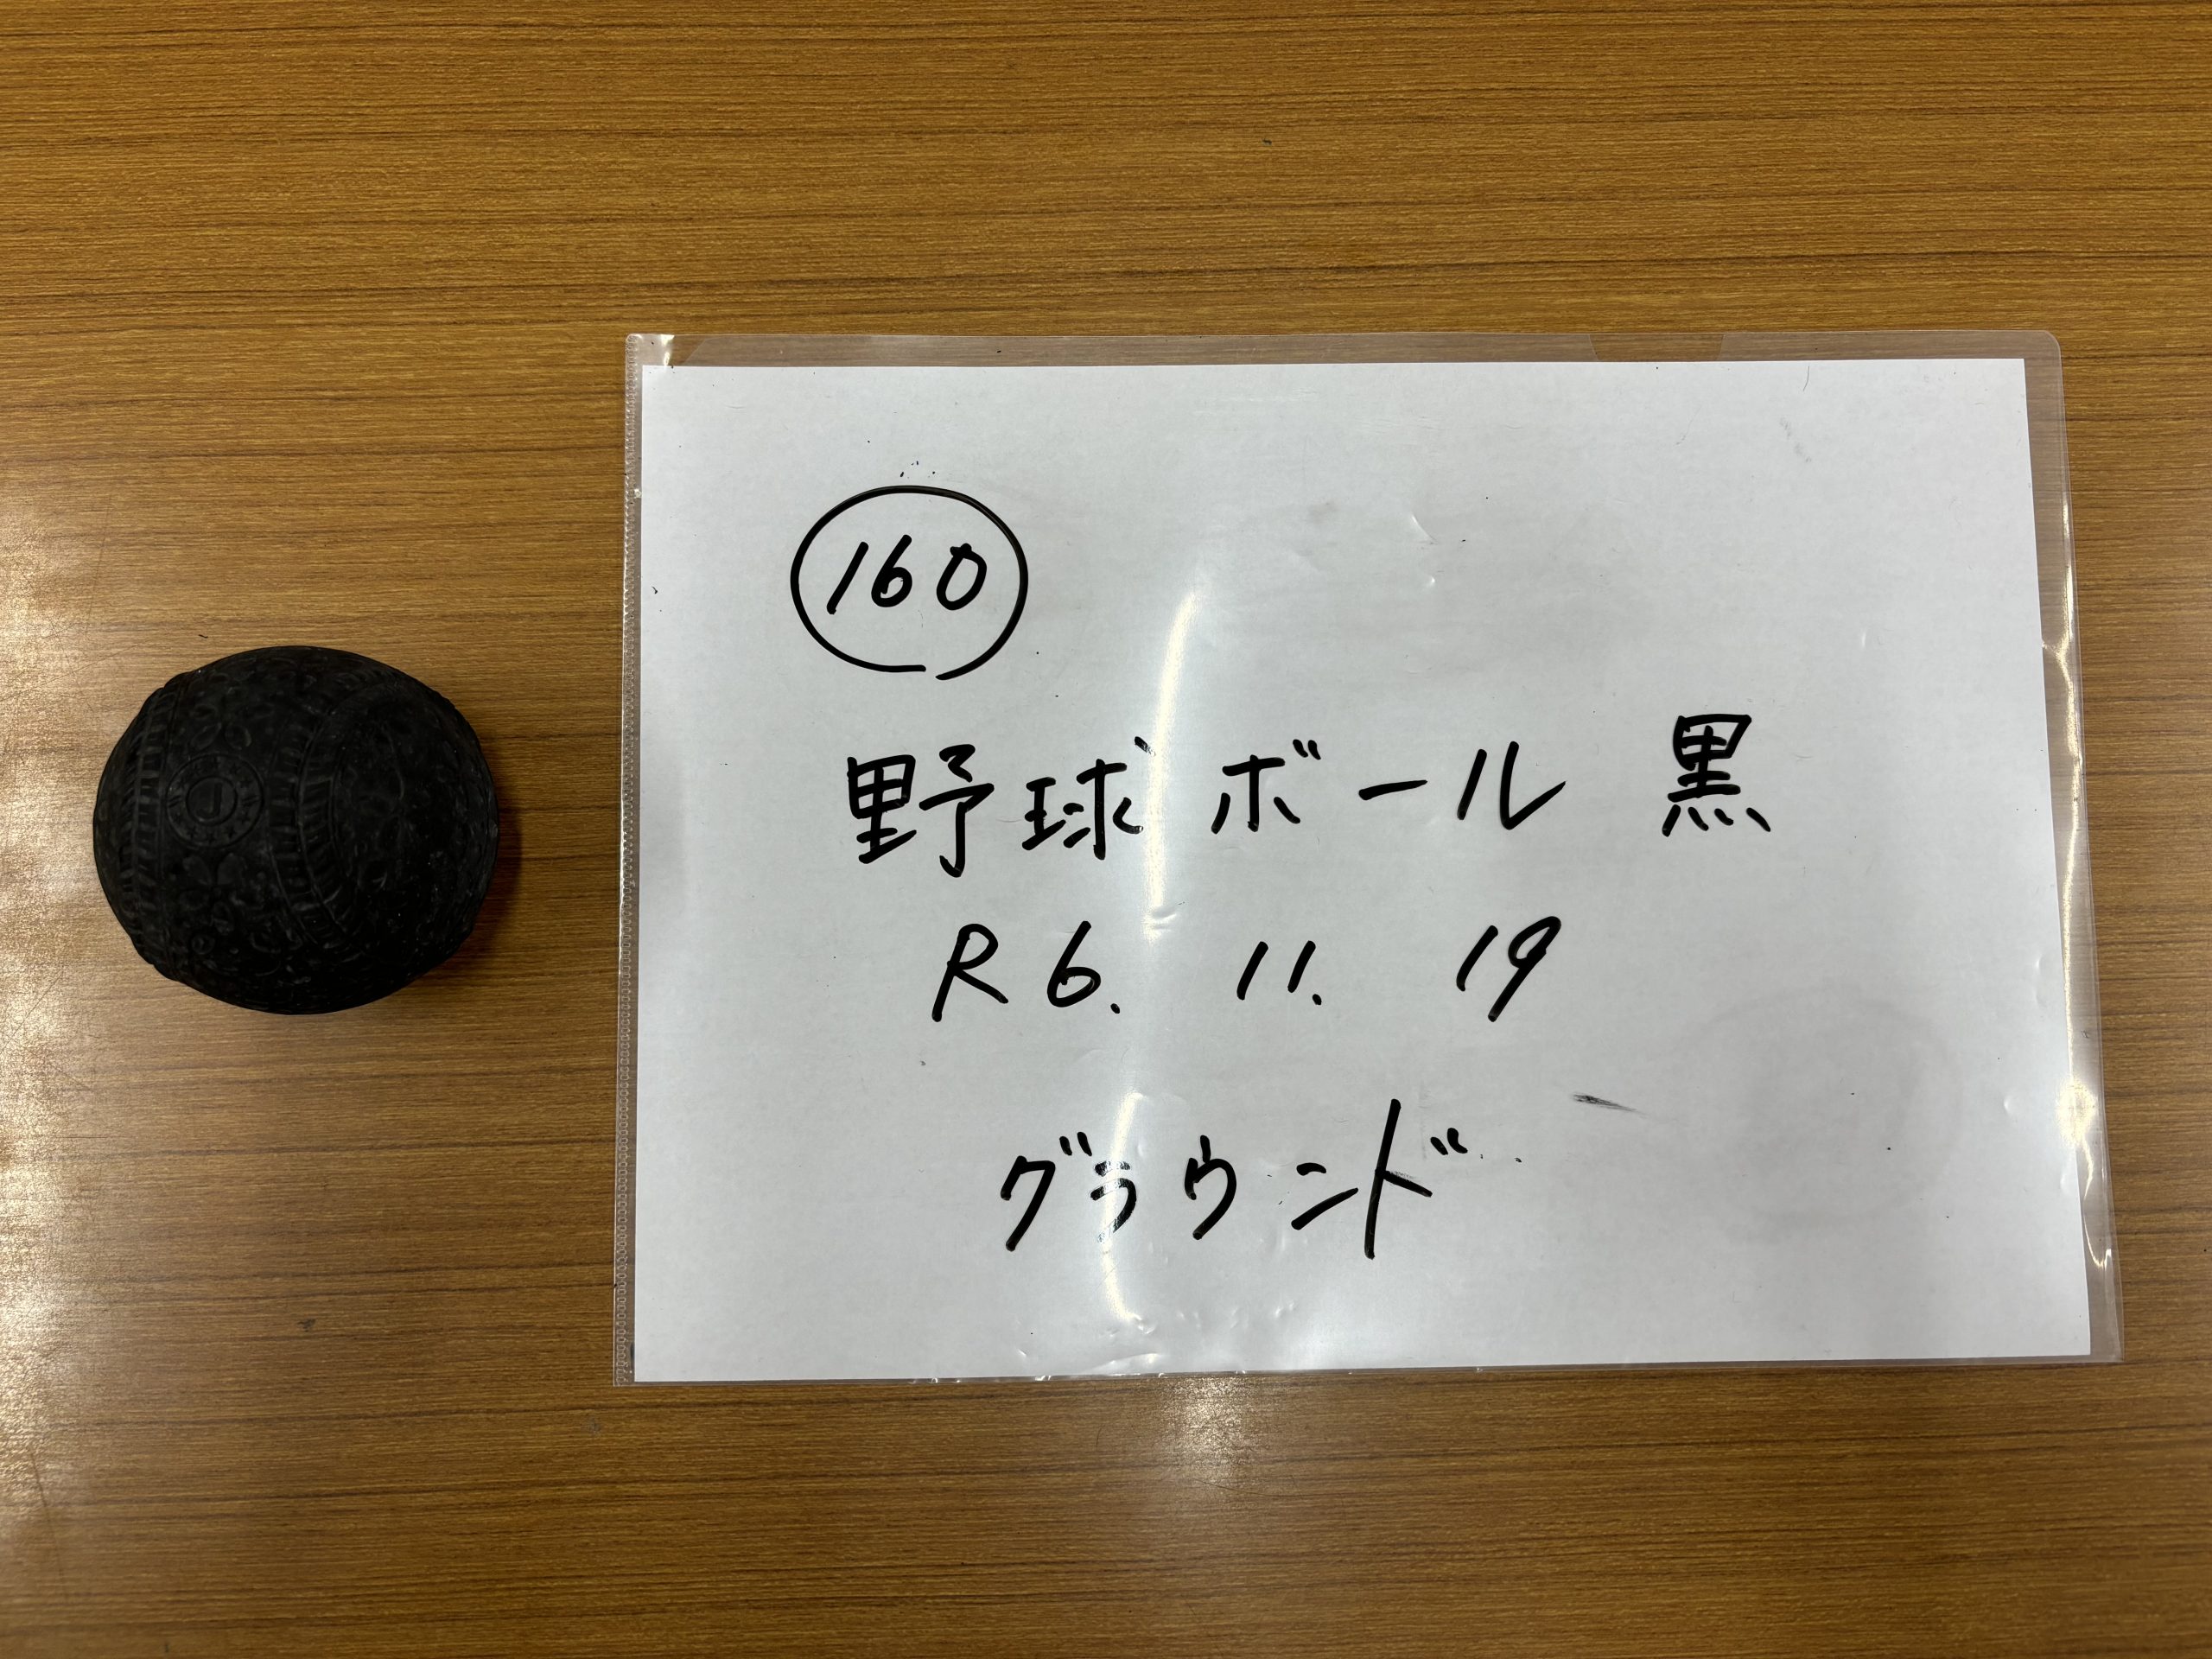 160
野球ボール 黒
R6. 11. 19
グラウンド